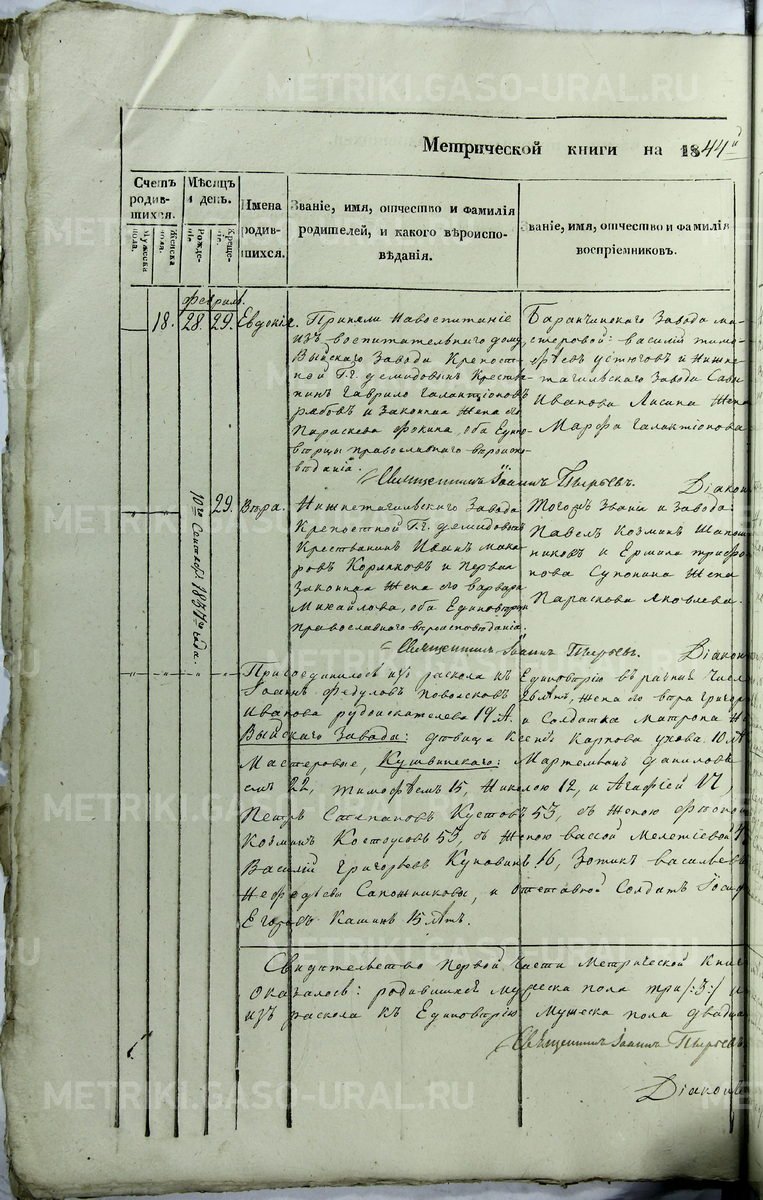 METRIKI.GASO-URAL.RU
Метрической книги на 1844й
Счетъ родившихся.
Мужеска пола.
Женска пола.
Мѣсяцъ и день.
Рожденіе.
Крещеніе.
Имена родившихся.
Званіе, имя, отчество и фамилія
родителей, и какого вѣроиспо-
вѣданія.
Званіе, имя, отчество и фамилія
воспріемниковъ.
февраль.
18. 28. 29. Евдокія.
Приняли навоспитаніе
изъ воспитательнаго дому
Выйскаго Завода Крепост
ной Гг. демидовыхъ Крестья
нинъ Гаврило Галактіоновъ
рабовъ и Законная Жена его
Параскева Фокина, оба Едино
вѣрцы православнаго вѣроиспо
вѣданія.
Баранчинскаго Завода ма-
стеровой: василій тимо-
фѣевъ устюговъ и Нижне-
тагильскаго Завода
Иванова Лисина Жена
Марфа Галактіонова
Священникъ Іоаннъ Пырьевъ. Діакон
10го Сентября 1837го года.
29. Вѣра.
Нижнетагильскаго Завода
Крепостной Гг. демидовыхъ
Крестьянинъ Иванъ мака
ровъ Корляковъ и Первая
Законная Жена его варвара
Михайлова, оба Единовѣрцы
православнаго вѣроисповѣданія.
Тогожъ Званія и Завода:
Павелъ Козминъ Шапош
никовъ и Ермила трифо
нова Супонина Жена
Параскова Яковлева.
Священникъ Іоаннъ Пырьевъ. Діакон
Присоединилось изъ раскола къ Единовѣрію въ разныхъ числ
Іоаннъ Федуловъ 26 лѣтъ, Жена его вѣра григорь
Иванова рудоискателева 19 л. и Солдатка матрона
Выйскаго Завода: дѣвица Ксенія Карпова ухова. 10 лѣ
Мастеровые, Кушвинскаго: Мартемьянъ даниловъ
22, тимофѣемъ 15, Николою 12, и Агафіей 17,
Петръ Степановъ Кустовъ 53, съ Женою
Козминъ Костоусовъ 53, съ Женою вассой Мелетіевой
Василій григорьевъ Куповинъ 16, Зотикъ васильевъ
Нефедьевы Сапожниковы, и отставной Солдатъ Іосиф
Егоровъ Кашинъ 15 лѣтъ.
Свидѣтельство первой части Метрической Кни
оказалось: родившихся мужеска пола три /:3:/ и
изъ раскола къ Единовѣрію мужеска пола двадца
Священникъ Іоаннъ Пырьевъ
Діаконъ